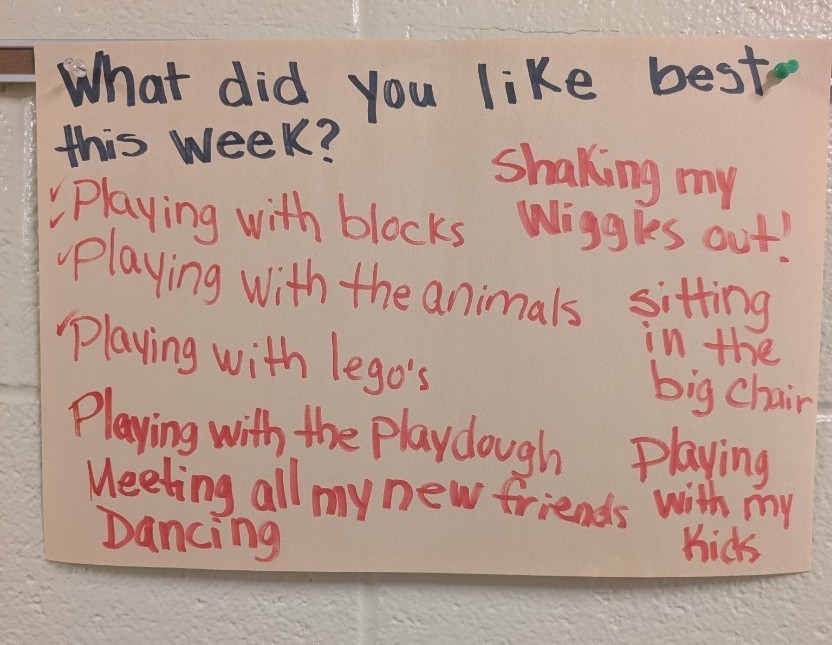 What did you like best
this week?
✓✓Playing with blocks
✓Playing with the animals
✓Playing with lego's
Playing with the Playdough
Meeting all my new friends
Dancing
Shaking my
Wiggles out!
sitting
in the
big chair
Playing
with my
Kids